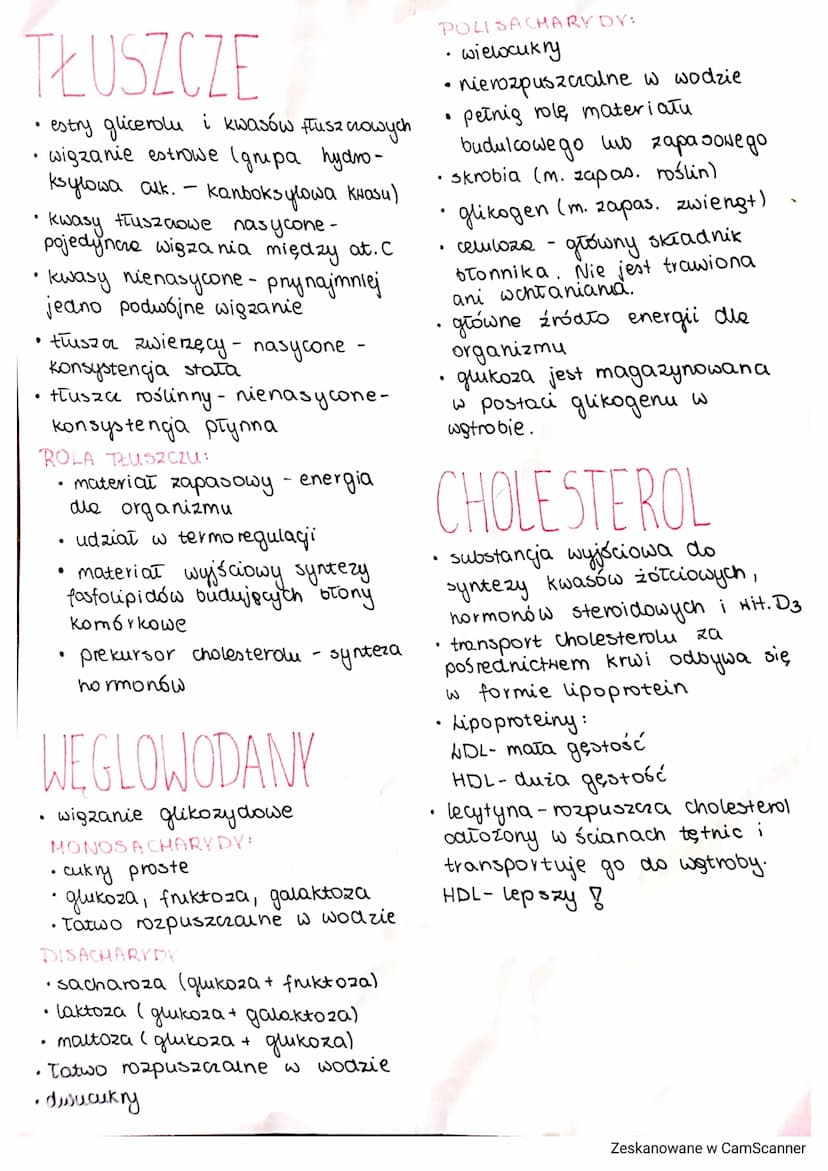 TŁUSZCZE
• estry glicerolu i kwasów tłuszczowych
• wiązanie estrowe (grupa hydro-
ksylowa alk. – karboksylowa kwasu)
• kwasy tłuszczowe nasycone -
pojedyncze wiązania między at. C
• kwasy nienasycone - przynajmniej
jedno podwójne wiązanie
• tłuszcz zwierzęcy - nasycone -
konsystencja stała
• tłuszcz roślinny - nienasycone-
konsystencja płynna
ROLA TŁUSZCZU:
• materiał zapasowy - energia
dla organizmu
• udział w termoregulacji
• materiał wyjściowy syntezy
fosfolipidów budujących błony
komórkowe
• prekursor cholesterolu - synteza
hormonów
WĘGLOWODANY
• wiązanie glikozydowe
MONOSACHARYDY:
• cukry proste
• glukoza, fruktoza, galaktoza
• łatwo rozpuszczalne w wodzie
DISACHARYDY
• sacharoza (glukoza + fruktoza)
• laktoza (glukoza + galaktoza)
• maltoza (glukoza + glukoza)
• łatwo rozpuszczalne w wodzie
• dwucukry
POLISACHARYDY:
• wielocukry
• nierozpuszczalne w wodzie
• pełnią rolę materiału
budulcowego lub zapasowego
• skrobia (m. zapas. roślin)
• glikogen (m. zapas. zwierząt)
• celuloza - główny składnik
błonnika. Nie jest trawiona
ani wchłaniana.
• główne źródło energii dla
organizmu
• glukoza jest magazynowana
w postaci glikogenu w
wątrobie.
CHOLESTEROL
• substancja wyjściowa do
syntezy kwasów żółciowych,
hormonów steroidowych i wit. D3
• transport cholesterolu za
pośrednictwem krwi odbywa się
w formie lipoprotein
• Lipoproteiny:
LDL- mała gęstość
HDL- duża gęstość
• lecytyna - rozpuszcza cholesterol
odłożony w ścianach tętnic i
transportuje go do wątroby.
HDL- lepszy !
Zeskanowane w CamScanner